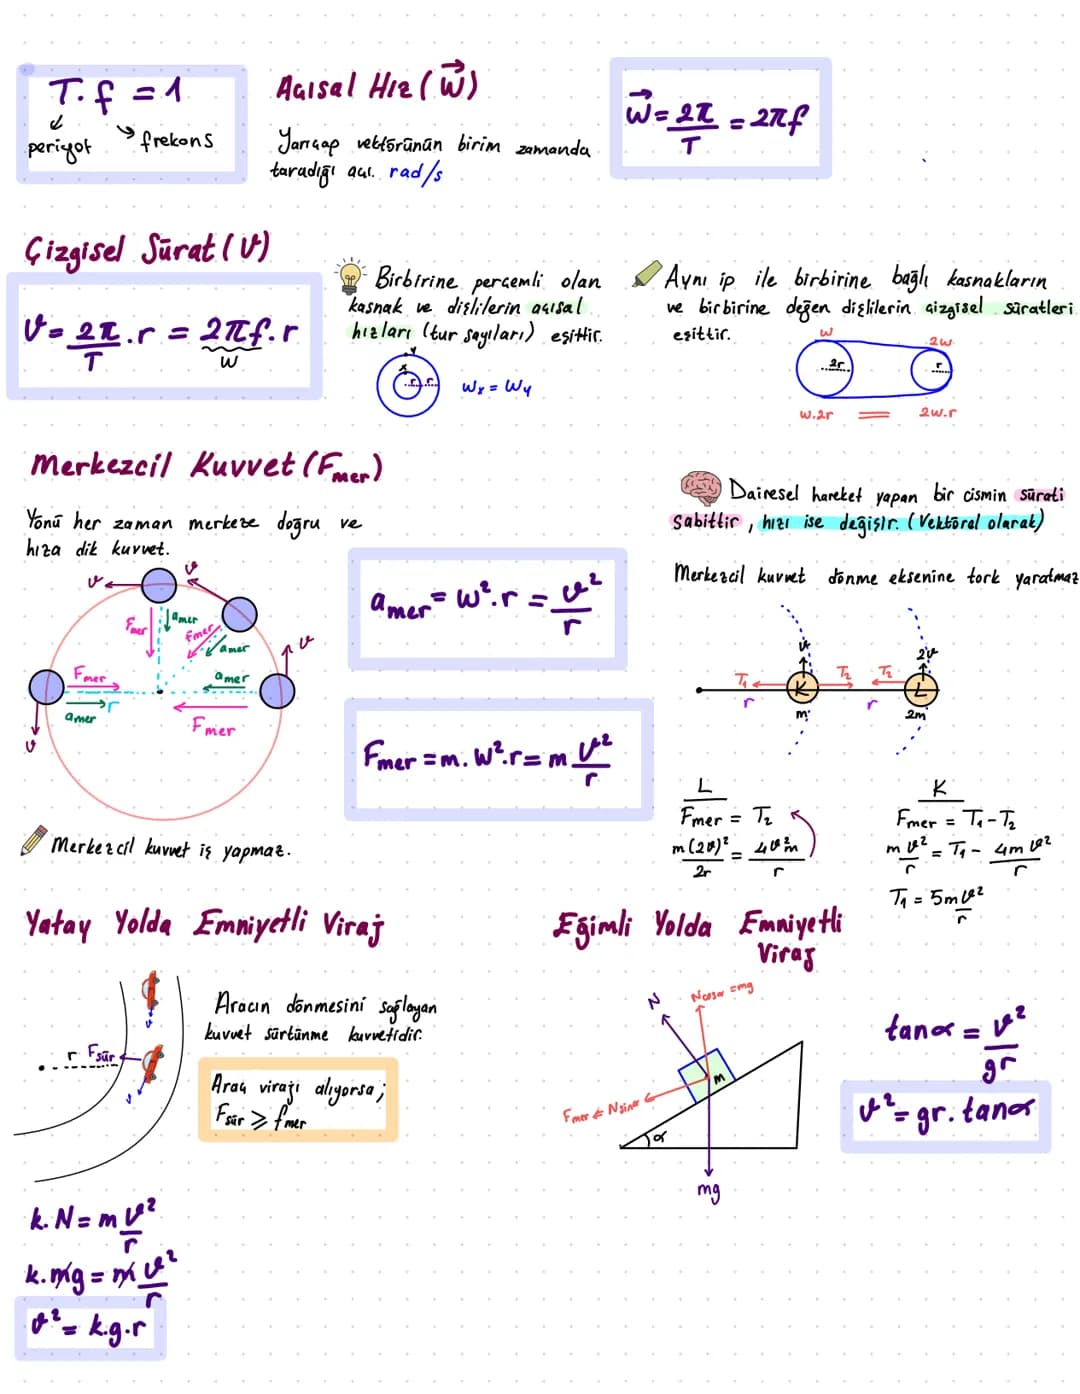 T. f = 1
periyot
frekans
Açısal Hız (w⃗)
Yarıçap vektörünün birim zamanda
taradığı açı. rad/s
w⃗ = 2π/T = 2πf
Çizgisel Sürat (v)
v = 2π/T . r = 2πf. r
w
Birbirine perçemli olan
kasnak ve dişlilerin açısal
hızları (tur sayıları) eşittir.
x
y
r
r
Wx = Wy
Aynı ip ile birbirine bağlı kasnakların
ve birbirine değen dişlilerin çizgisel süratleri
eşittir.
w
2w
2r
r
w.2r = 2w.r
Merkezcil Kuvvet (Fmer)
Yönü her zaman merkeze doğru ve
hıza dik kuvvet.
v
v
Fmer
amer
Fmer
amer
v
Fmer
amer
r
amer
Fmer
v
Merkezcil kuvvet iş yapmaz.
amer = w².r = v²/r
Fmer = m. w².r = m v²/r
Dairesel hareket yapan bir cismin sürati
sabittir, hızı ise değişir. (Vektörel olarak)
Merkezcil kuvvet dönme eksenine tork yaratmaz
v
2v
T₁
K
T₂
T₂
L
r
m
r
2m
L
Fmer = T₂
m(2v)²/2r = 4v²m/r
K
Fmer = T₁ - T₂
m v²/r = T₁ - 4m v²/r
T₁ = 5m v²/r
Yatay Yolda Emniyetli Viraj
r
Fsür
v
v
Aracın dönmesini sağlayan
kuvvet sürtünme kuvvetidir.
Araç virajı alıyorsa;
Fsür ⩾ fmer
k. N = m v²/r
k. mg = m v²/r
v² = k.g.r
Eğimli Yolda Emniyetli
Viraj
N
Ncosα = mg
m
Fmer ← Nsinα
α
mg
tanα = v²/gr
v² = gr. tanα